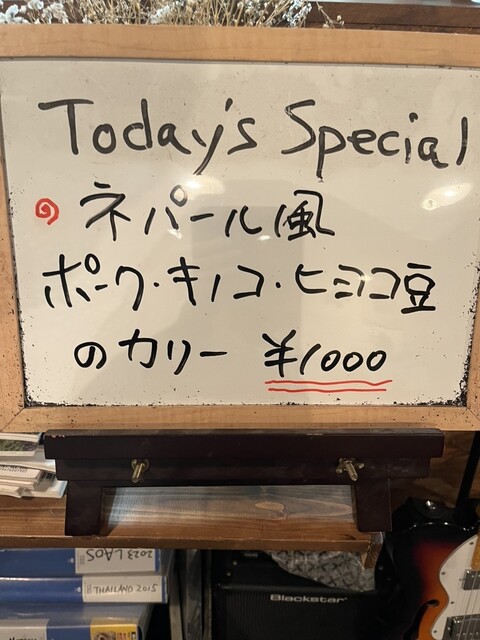 Today's Special
ネパール風
ポーク・キノコ・ヒヨコ豆
のカリー ¥1000
2023 LAOS
THAILAND 2015
Blackstar